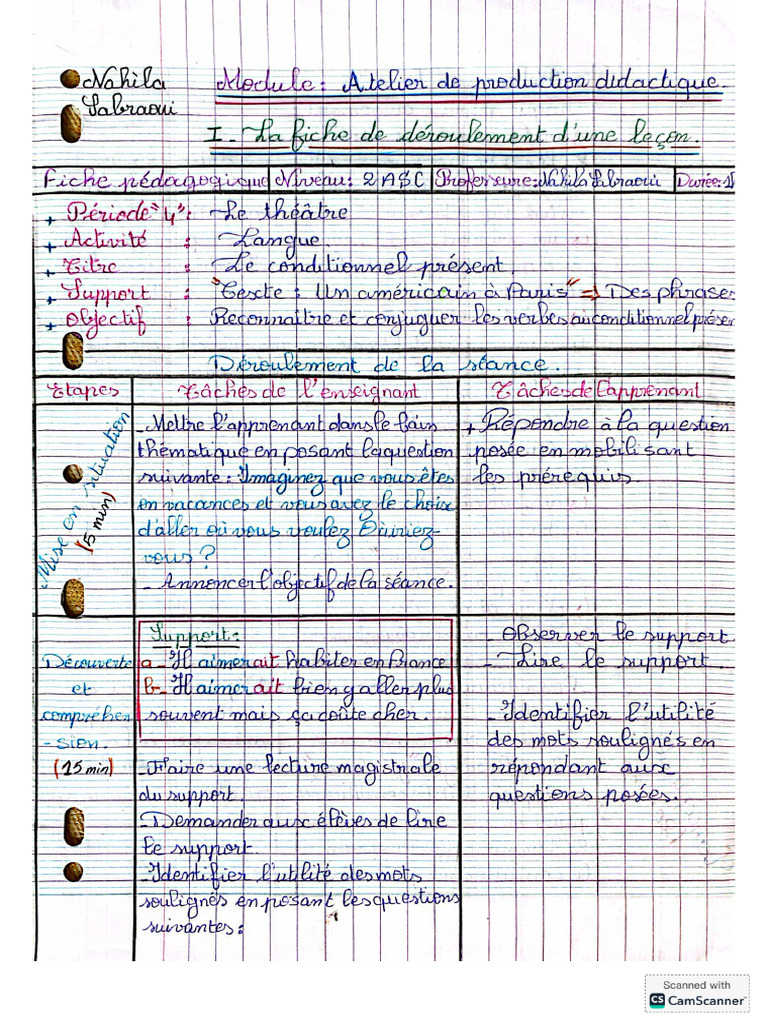 Nahila
Sabraoui
Module: Atelier de production didactique.
I - La fiche de déroulement d'une leçon.
Fiche pédagogique Niveau: 2ASC Professeure: Nahila Sebraoui Durée: 1
+ Période "4": Le théâtre
+ Activité : Langue.
+ Titre : Le conditionnel présent.
+ Support : "Texte: Un américain à Paris" => Des phrases
+ Objectif : Reconnaître et conjuguer les verbes au conditionnel présen
Déroulement de la séance.
Etapes Tâches de l'enseignant Tâches de l'apprenant
Mise en situation
(5 min)
- Mettre l'apprenant dans le bain
thématique en posant la question
suivante: Imaginez que vous êtes
en vacances et vous avez le choix
d'aller où vous voulez Où iriez-
vous ?
- Annoncer l'objectif de la séance.
+ Répondre à la question
posée en mobilisant
les prérequis.
Découverte
et
compréhen
-sion.
(15 min)
Support:
a - Il aimerait habiter en France
b - Il aimerait bien y aller plus
souvent mais ça coûte cher.
- Faire une lecture magistrale
du support
Demander aux élèves de lire
le support.
- Identifier l'utilité des mots
soulignés en posant les questions
suivantes:
- Observer le support
- Lire le support.
- Identifier l'utilité
des mots soulignés en
répondant aux
questions posées.
Scanned with
CS CamScanner